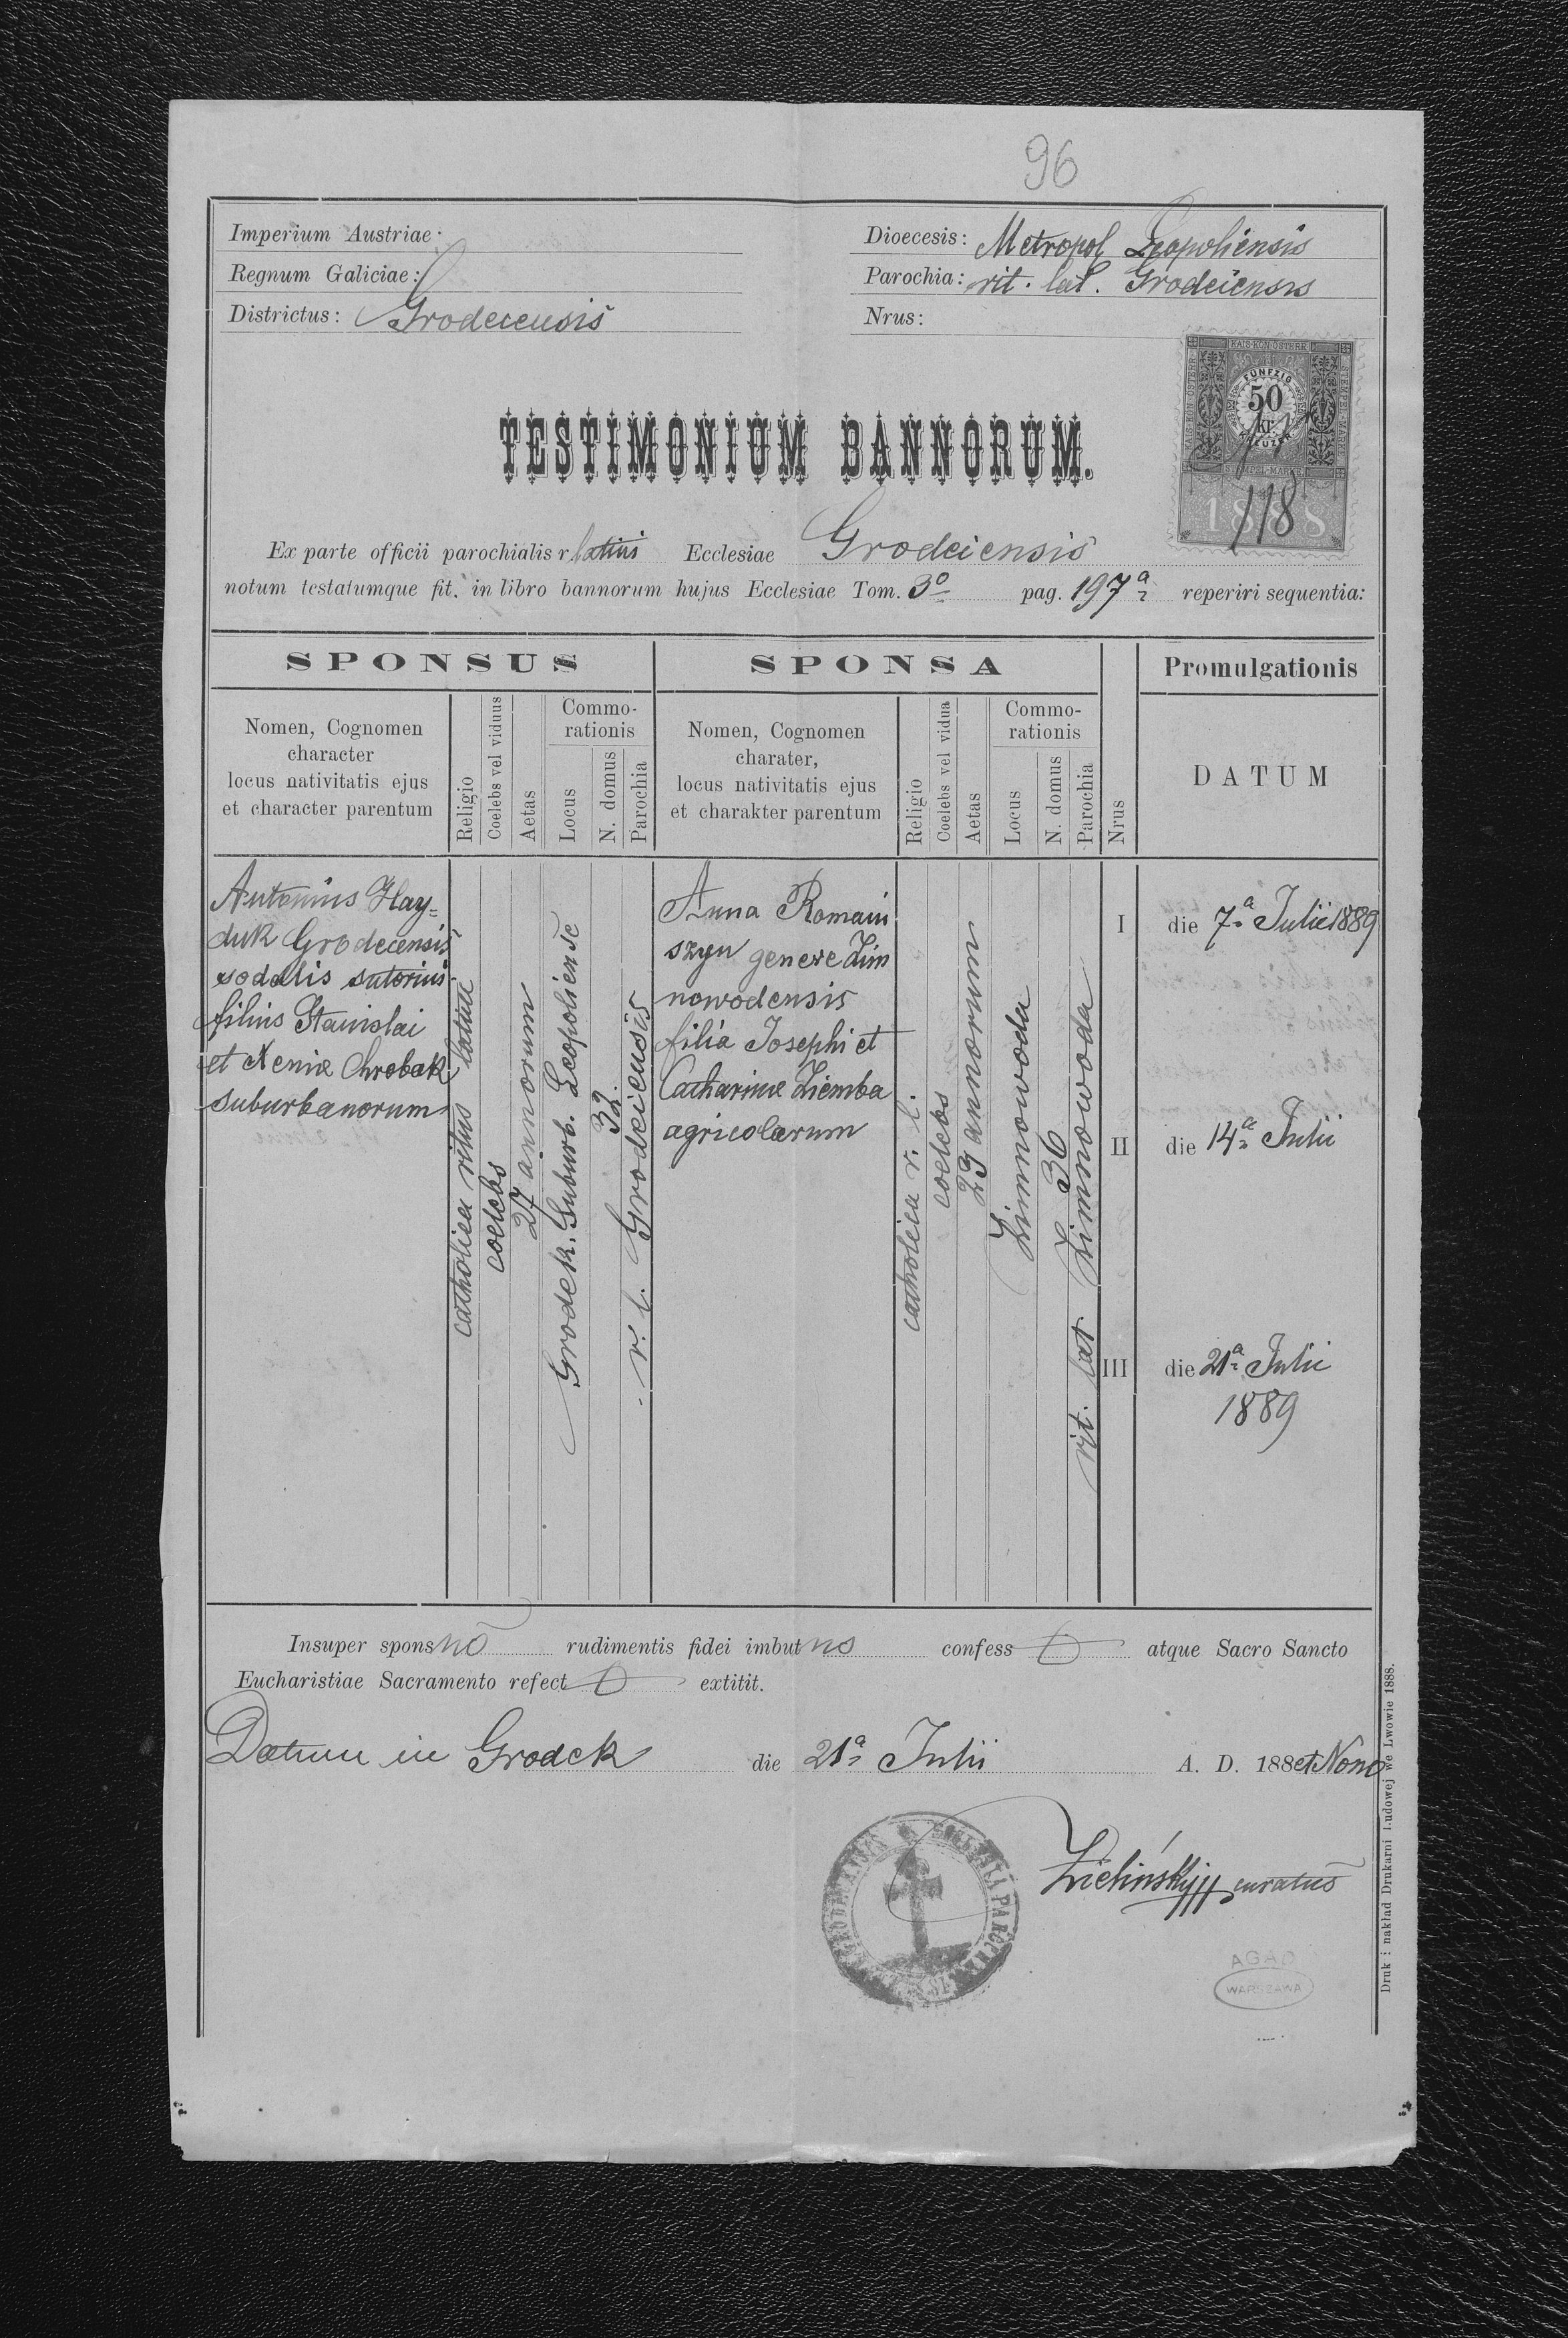 96
Imperium Austriae:
Regnum Galiciae:
Districtus: Grodeciensis
Dioecesis: Metropol Leopoliensis
Parochia: rit. lat. Grodeciensis
Nrus:
KAIS·KÖN·ÖSTERR
FÜNFZIG
50
kr.
KREUZER
STEMPEL-MARKE
1888
118
TESTIMONIUM BANNORUM.
Ex parte officii parochialis r. latini Ecclesiae Grodeciensis
notum testatumque fit, in libro bannorum hujus Ecclesiae Tom. 3º pag. 197ª reperiri sequentia:
SPONSUS
SPONSA
Promulgationis
Nomen, Cognomen
character
locus nativitatis ejus
et character parentum
Religio
Coelebs vel viduus
Aetas
Commo-
rationis
Locus
N. domus
Parochia
Nomen, Cognomen
charater,
locus nativitatis ejus
et charakter parentum
Religio
Coelebs vel vidua
Aetas
Commo-
rationis
Locus
N. domus
Parochia
Nrus
DATUM
Antonius Hay=
duk Grodecensis
sodalis sutorius
filius Stanislai
et Xeniæ Chrobak
suburbanorum
catholica ritus latini
coelebs
27 annorum
Grodek. Suburb. Leopoliense
32.
r. l. Grodeciensis
Anna Romani
szyn genere Zim
nowodensis
filia Josephi et
Catharinæ Ziemba
agricolarum
catholica r. l.
coelebs
23 annorum
Zimnowoda
36
rit. lat Zimnowoda
I die 7ª Julii 1889
II die 14ª Julii
III die 21ª Julii
1889
Insuper spons no rudimentis fidei imbut no confess atque Sacro Sancto
Eucharistiae Sacramento refect extitit.
Datum in Grodek die 21ª Julii A. D. 188 et Nono
Zielińskyj curatus
ECCLESIA PAROCH
AGAD
WARSZAWA
Druk i nakład Drukarni Ludowej we Lwowie 1888.